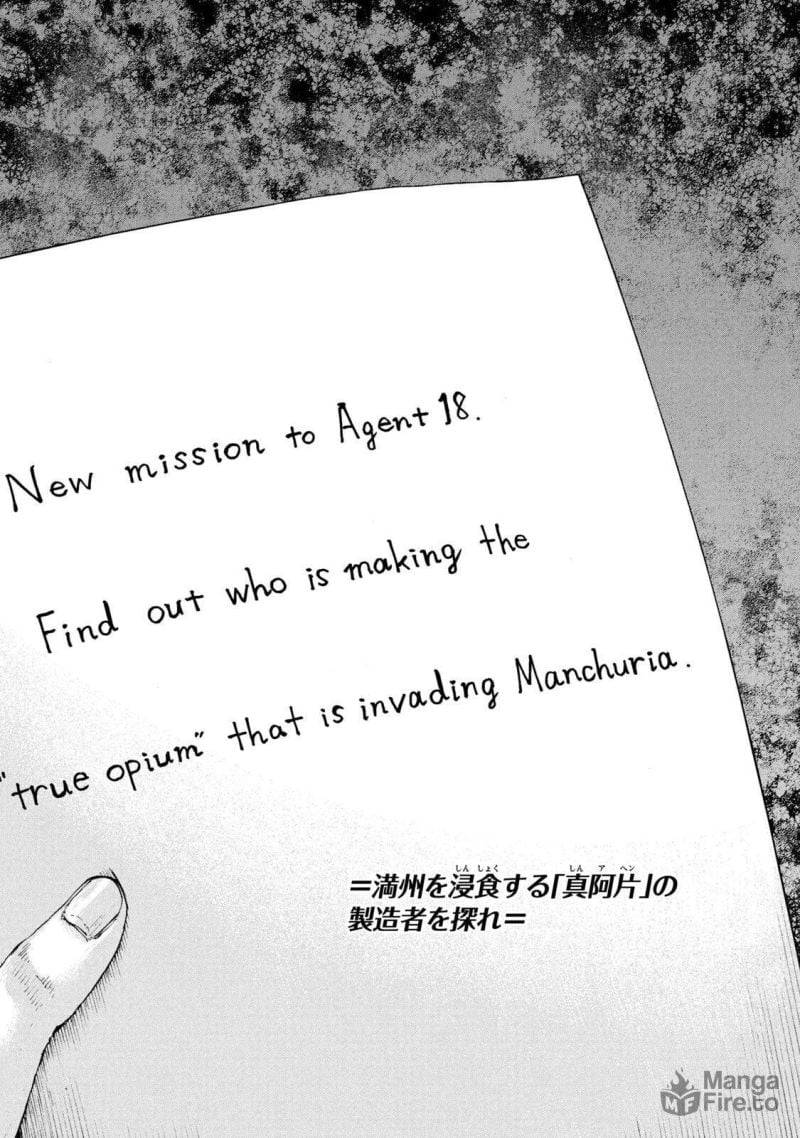 New mission to Agent 18.
Find out who is making the
"true opium" that is invading Manchuria.
=満州を浸食する「真阿片」の
製造者を探れ=
しんしょく
しんアヘン
Manga
MF Fire.to